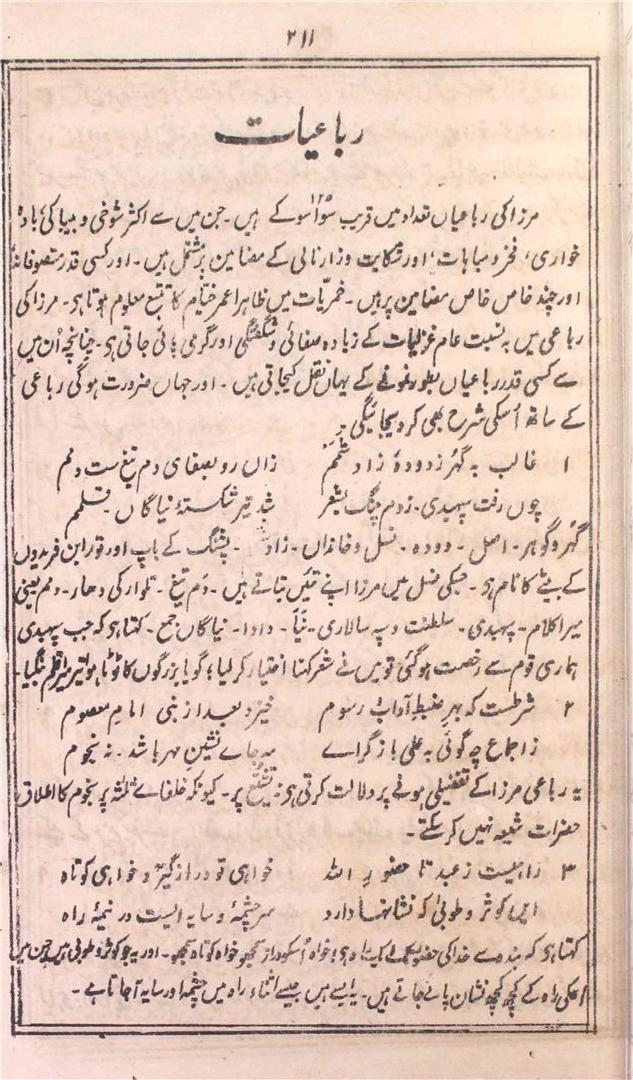 ۲۱۱
رباعیات
مرزا کی رباعیاں تعداد میں قریب سوا سو کے ہیں۔ جن میں سے اکثر شوخی و بیباکی، بادہ
خواری، فخر و مباہات، اور شکایت و زار نالی کے مضامین پر مشتمل ہیں۔ اور کسی قدر متصوفانہ
اور چند خاص خاص مضامین پر ہیں۔ خمریات میں ظاہرا عمر خیام کا تتبع معلوم ہوتا ہی۔ مرزا کی
رباعی میں بہ نسبت عام غزلیات کے زیادہ صفائی و شگفتگی اور گرمی پائی جاتی ہی۔ چنانچہ اُن میں
سے کسی قدر رباعیاں بطور نمونے کے یہاں نقل کیجاتی ہیں۔ اور جہاں ضرورت ہوگی رباعی
کے ساتھ اُسکی شرح بھی کر دیجائیگی۔
۱ غالب بہ گُہر ز دودۂ زاد شمم زاں رو بصفای دم تیغ ست دمم
چوں رفت سپہبدی۔ زدم چنگ بشعر شد تیر شکستۂ نیاگاں۔ قلمم
گُہر و گوہر۔ اصل۔ دودہ۔ نسل و خانداں۔ زاد شم۔ پشنگ کے باپ اور تور ابن فریدوں
کے بیٹے کا نام ہی۔ جسکی نسل میں مرزا اپنے تئیں بتاتے ہیں۔ دَم تیغ۔ تلوار کی دھار۔ دمم یعنی
میرا کلام۔ سپہبدی۔ سلطنت و سپہ سالاری۔ نیا۔ دادا۔ نیاگاں جمع۔ کہتا ہی کہ جب سپہبدی
ہماری قوم سے رخصت ہو گئی تو میں نے شعر کہنا اختیار کر لیا؛ گویا بزرگوں کا ٹوٹا ہوا تیر میرا قلم بنگیا۔
۲ شرطست کہ بہرِ ضبطِ آداب و رسوم خیزد بعد از نبی امامِ معصوم
ز اجماع چہ گوئی بہ علی باز گرائے مہ جاے نشینِ مہر باشد۔ نہ نجوم
یہ رباعی مرزا کے تفضیلی ہونے پر دلالت کرتی ہی نہ تشیّع پر۔ کیونکہ خلفاے ثلٰثہ پر نجوم کا اطلاق
حضرات شیعہ نہیں کر سکتے۔
۳ راہیست ز عبد تا حضورِ اللہ خواہی تو دراز گیر و خواہی کوتاہ
ایں کوثر و طوبیٰ کہ نشانہا دارد سرچشمہ و سایہ ایست در نیمۂ راہ
کہتا ہی کہ بندے سے خدا کی حضور تک ایک راہ ہی؛ خواہ اُسکو دراز سمجھو خواہ کوتاہ سمجھو۔ اور یہ جو کوثر و طوبیٰ ہیں جن میں
اُسکی راہ کے کچھ کچھ نشان پائے جاتے ہیں۔ یہ ایسے ہیں جیسے اثناء راہ میں چشمہ اور سایہ آجاتا ہے۔